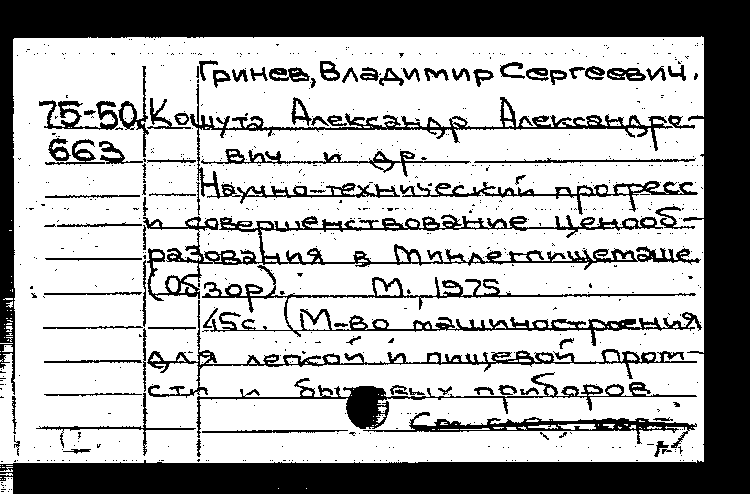 Гринев, Владимир Сергеевич.
75-50 Кошута, Александр Александро-
663 вич и др.
Научно-технический прогресс
и совершенствование ценооб-
разования в Минлегпищемаше.
(Обзор). М., 1975.
45с. (М-во машиностроения
для легкой и пищевой пром-
сти и бытовых приборов
См. след. карт.